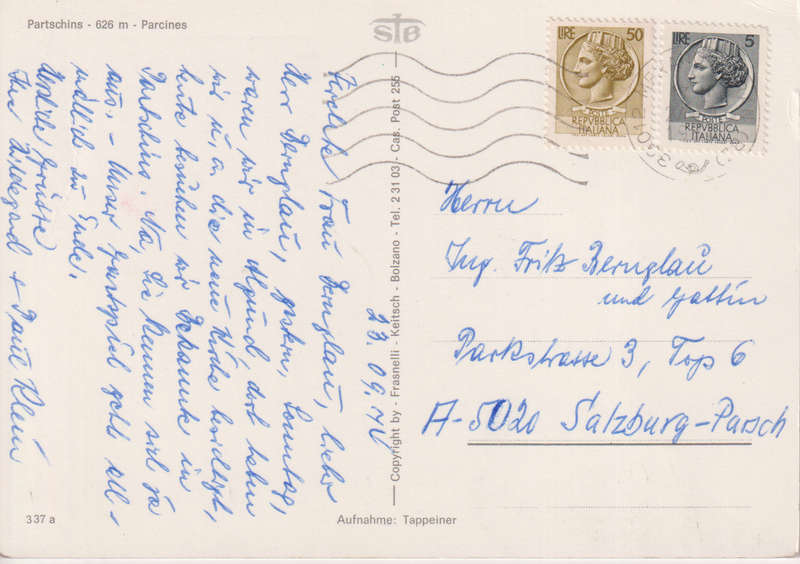 Partschins - 626 m - Parcines
STB
LIRE 50
POSTE
REPVBBLICA
ITALIANA
LIRE 5
POSTE
REPVBBLICA
ITALIANA
23.09.
Verehrte Frau Bernglau, lieber
Herr Bernglau, gestern, Sonntag,
waren wir in Algund dort haben
wir u. a. die neue Kirche besichtigt,
heute besuchen wir Bekannte in
Partschins. Na, Sie kennen sich ja
aus. - Unser Gastspiel geht all-
mählich zu Ende.
Herzliche Grüsse
Ihre + Paul Klein
Copyright by - Frasnelli - Keitsch - Bolzano - Tel. 2 31 03 - Cas. Post 255
Herrn
Ing. Fritz Bernglau
und Gattin
Parkstrasse 3, Top 6
A-5020 Salzburg-Parsch
337 a
Aufnahme: Tappeiner